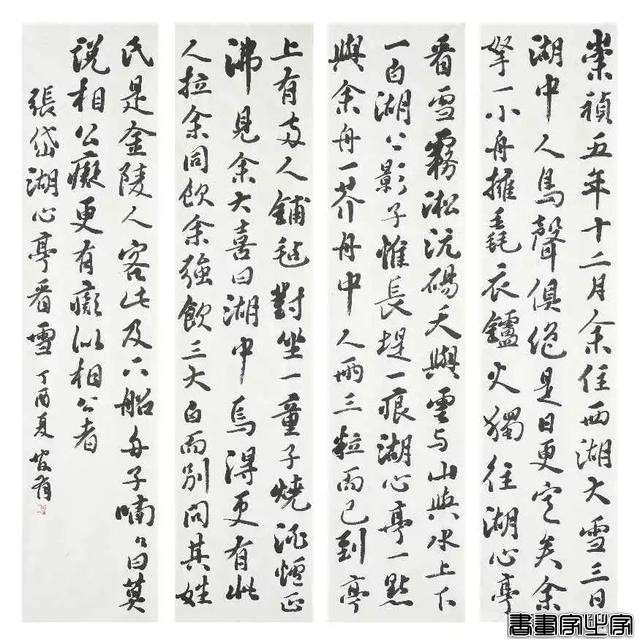 崇禎五年十二月余住西湖大雪三日
湖中人鳥聲俱絕是日更定矣余
拏一小舟擁毳衣鑪火獨往湖心亭
看雪霧淞沆碭天與雲與山與水上下
一白湖上影子惟長堤一痕湖心亭一點
與余舟一芥舟中人兩三粒而已到亭
上有兩人鋪氈對坐一童子燒酒爐正
沸見余大喜曰湖中焉得更有此
人拉余同飲余強飲三大白而別問其姓
氏是金陵人客此及下船舟子喃々曰莫
說相公癡更有癡似相公者
張岱湖心亭看雪丁酉夏
書畫家之家